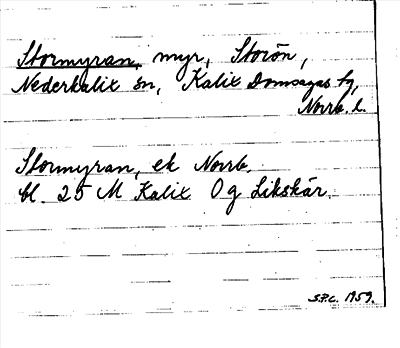 Stormyran, myr, Storön,
Nederkalix sn, Kalix Domsagas tg,
Norrb. l.
Stormyran, ek Norrb.
bl. 25 M Kalix Og Likskär.
S.P.C. 1959.